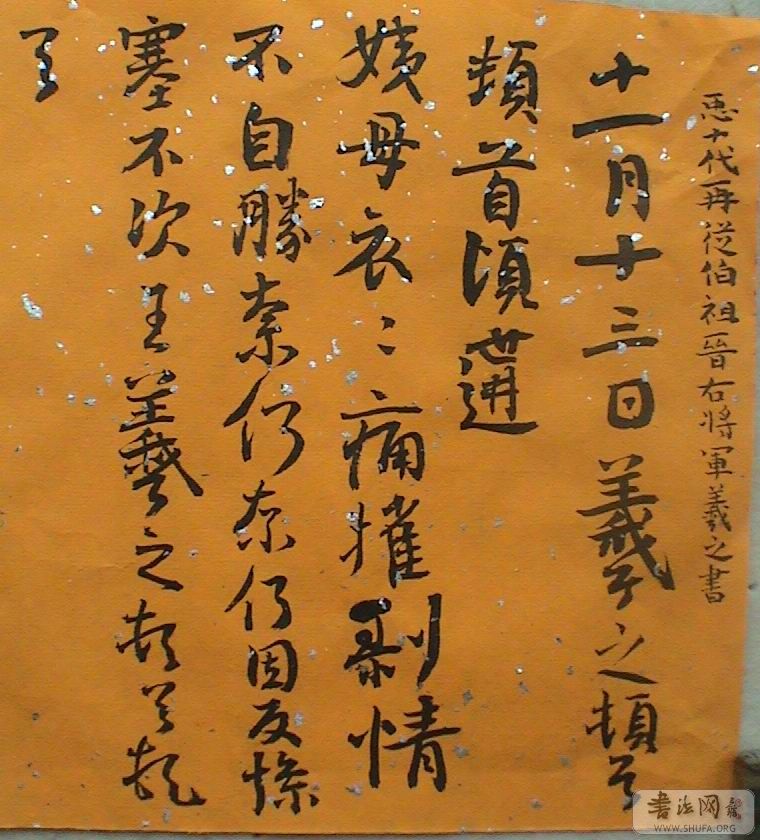 𢘑十代再從伯祖晉右將軍羲之書
十一月十三日羲之頓首
頓首頃遘
姨母哀〻痛摧剥情
不自勝奈何奈何因反慘
塞不次王羲之頓首頓
首
书法网
WWW.SHUFA.ORG